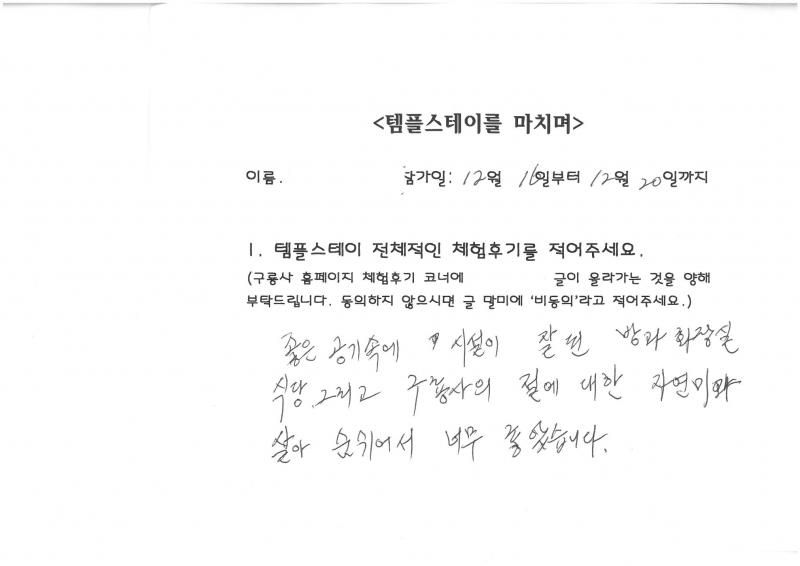 <템플스테이를 마치며>
이름. 참가일: 12월 16일부터 12월 20일까지
1. 템플스테이 전체적인 체험후기를 적어주세요.
(구룡사 홈페이지 체험후기 코너에 글이 올라가는 것을 양해
부탁드립니다. 동의하지 않으시면 글 말미에 '비동의'라고 적어주세요.)
좋은 공기속에 시설이 잘 된 방과 화장실
식당, 그리고 구룡사의 절에 대한 자연미와
살아 숨쉬어서 너무 좋았습니다.